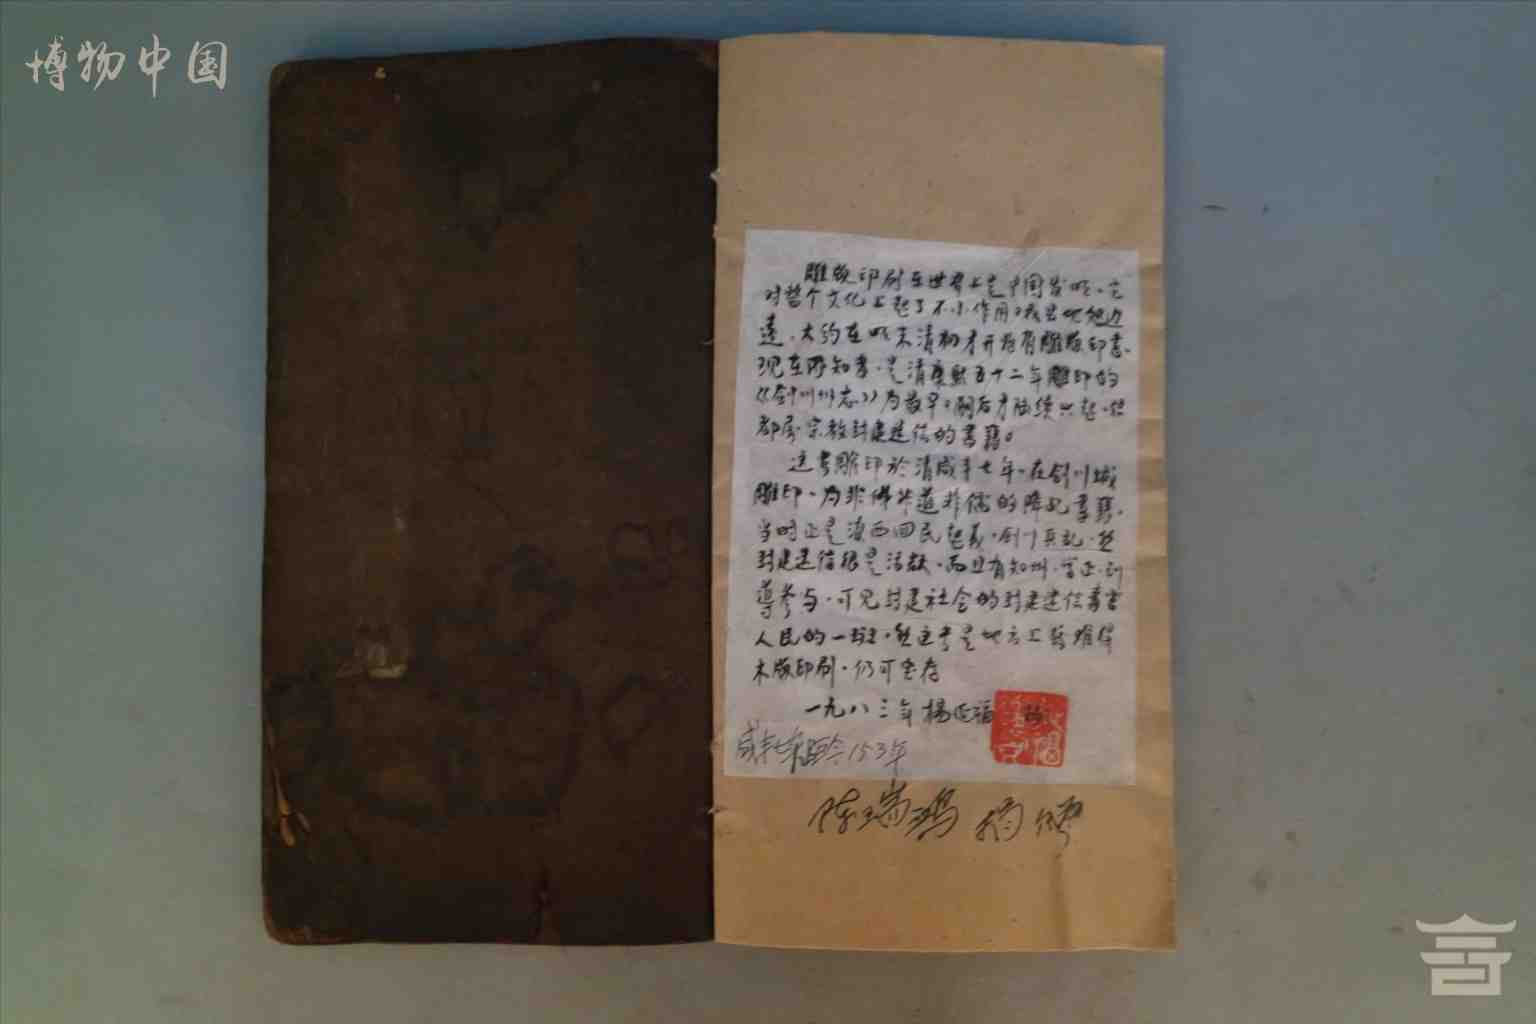 博物中国
雕版印刷在世界上是中国发明。它
对整个文化上起了不小作用。我县地处边
远,大约在明末清初才开始有雕版印书。
现在所知者,是清康熙五十二年雕印的
《剑川州志》为最早。嗣后才陆续兴起,但
都属宗教封建迷信的书籍。
这书雕印於清咸丰七年,在剑川城
雕印,为非佛非道非儒的降乩书籍。
当时正是滇西回民起义,剑川兵乱,然
封建迷信很是活跃,而且有知州、学正、训
导参与,可见封建社会的封建迷信毒害
人民的一斑,但这书是地方上较难得
木版印刷,仍可宝存
一九八三年 楊延福
咸丰七年距今153年
陈瑞鸿 捐赠